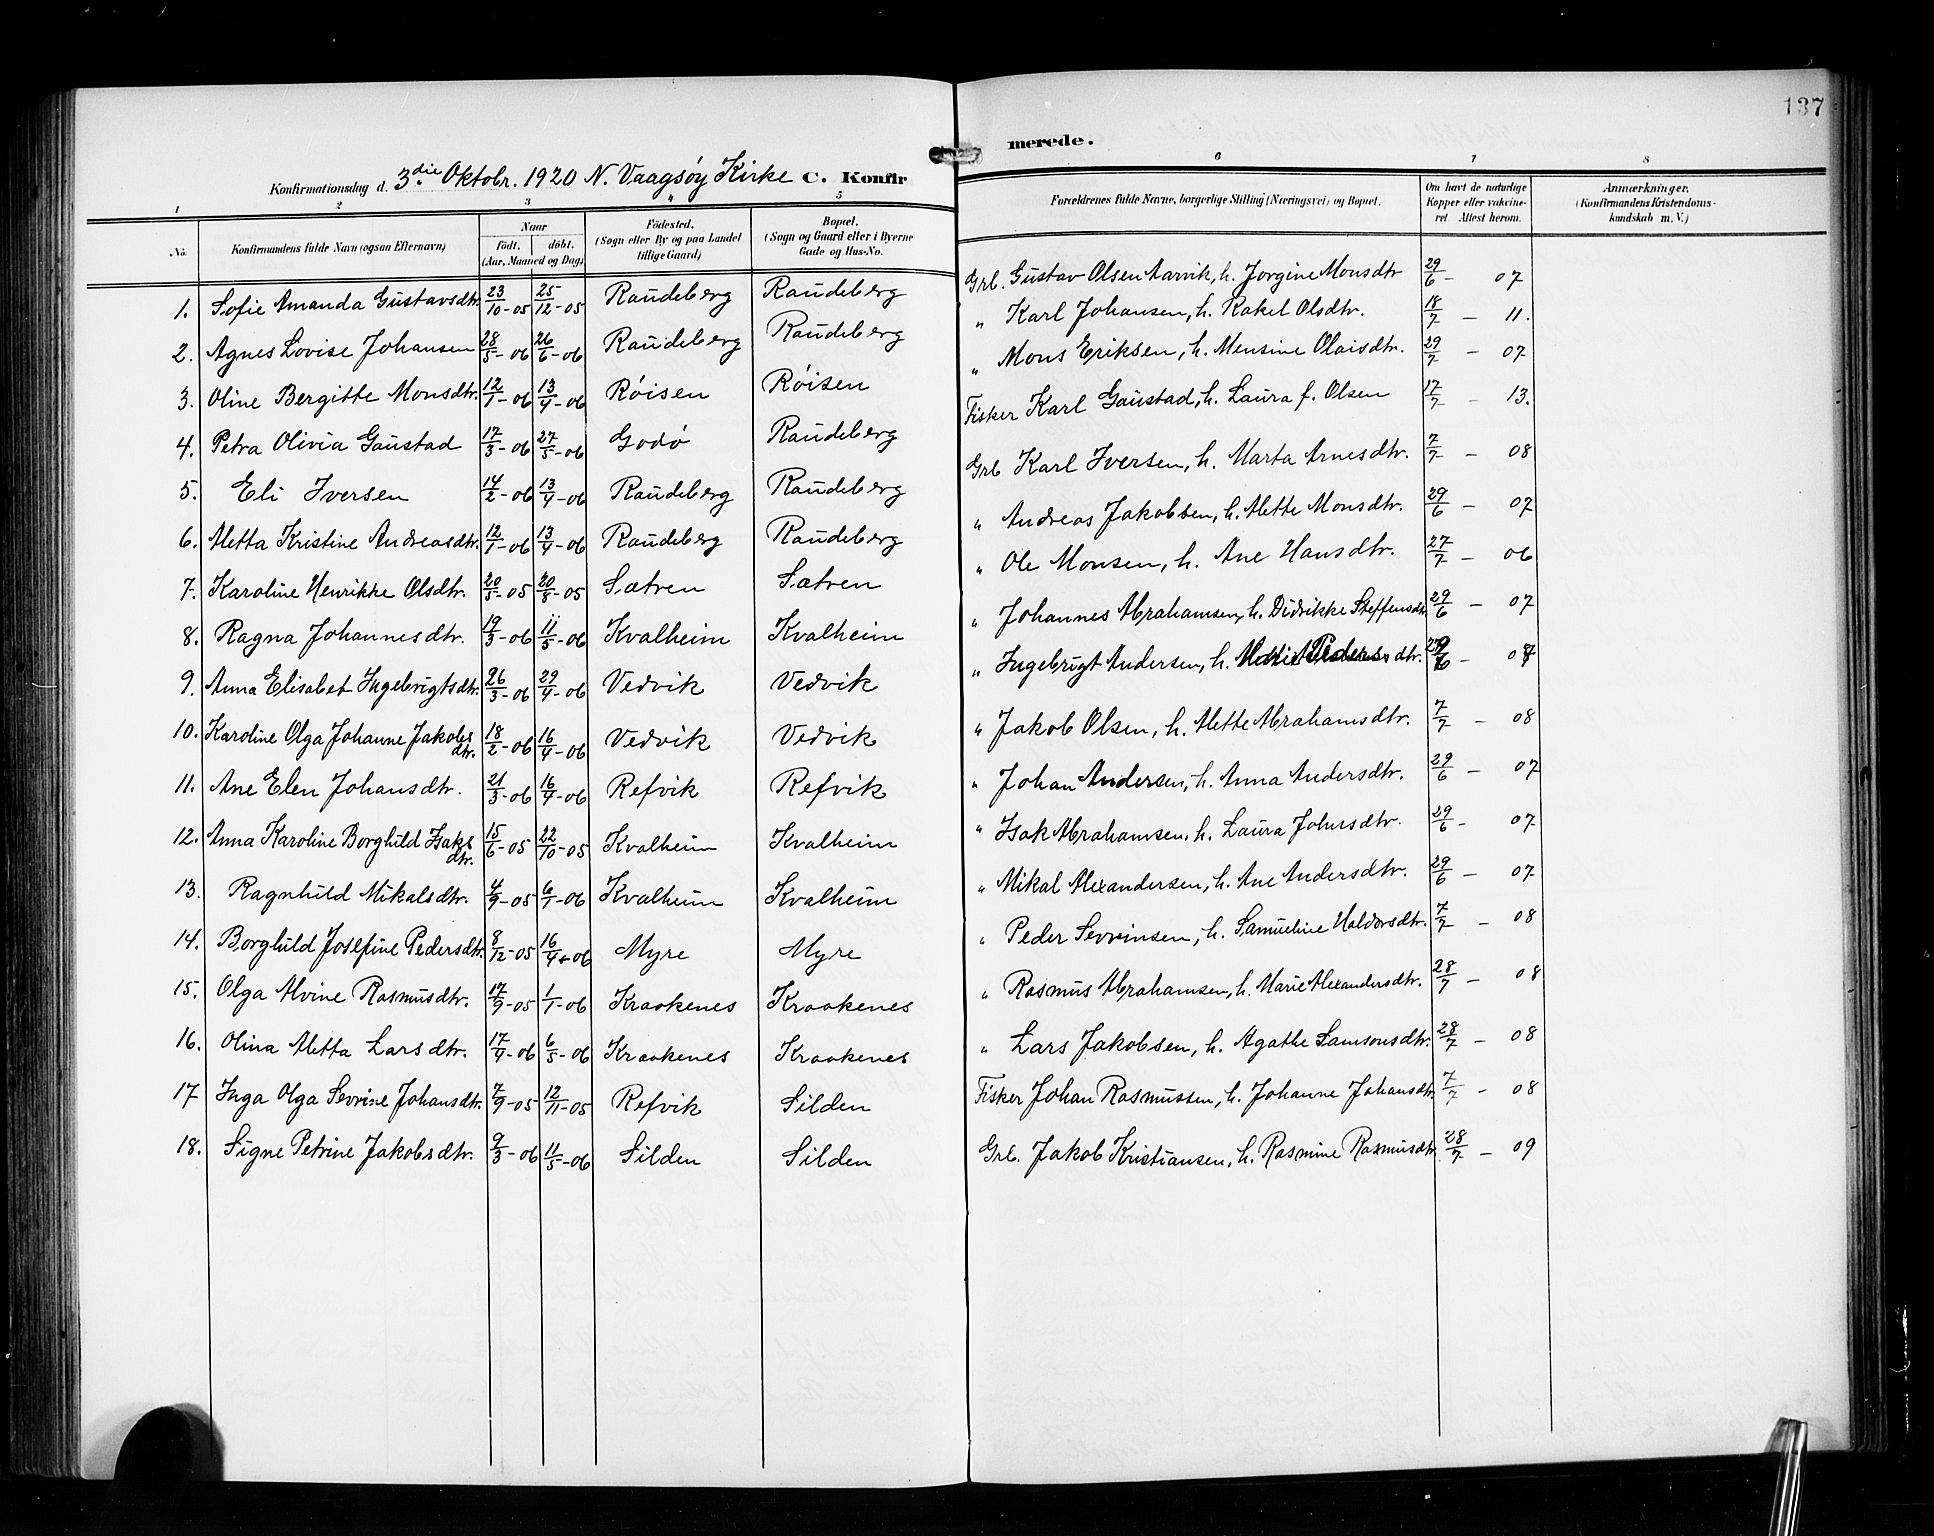 137
Konfirmationsdag d. 3die Oktobr. 1920 N. Vaagsøy Kirke C. Konfirmerede.
1 2 3 4 5 6 7 8
No. Konfirmandens fulde Navn (ogsaa Efternavn) Naar født. døbt. (Aar, Maaned og Dag) Fødested. (Sogn eller By og paa Landet tillige Gaard) Bopæl. (Sogn og Gaard eller i Byerne Gade og Hus-No. Forældrenes fulde Navne, borgerlige Stilling (Næringsvei) og Bopæl. Om havt de naturlige Kopper eller vakcineret Attest herom. Anmærkninger. (Konfirmandens Kristendomskundskab m. V.)
1. Sofie Amanda Gustavsdtr. 23/10-05 25/12-05 Raudeberg Raudeberg Grb. Gustav Olsen Aarvik, h. Jorgine Monsdtr 29/6 - 07
2. Agnes Lovise Johansen 28/5-06 26/6-06 Raudeberg Raudeberg " Karl Johansen, h. Rakel Olsdtr. 18/7 - 11.
3. Oline Bergitte Monsdtr. 12/1-06 13/4-06 Røisen Røisen " Mons Eriksen, h. Mensine Olaisdtr. 29/7 - 07
4. Petra Olivia Gaustad 17/3-06 27/5-06 Godø Raudeberg Fisker Karl Gaustad, h. Laura f. Olsen 17/7 - 13.
5. Eli Iversen 14/2-06 13/4-06 Raudeberg Raudeberg Grb Karl Iversen, h. Marta Arnesdtr. 7/7 - 08
6. Aletta Kristine Andreasdtr. 12/1-06 13/4-06 Raudeberg Raudeberg " Andreas Jakobsen, h. Alette Monsdtr. 29/6 - 07
7. Karoline Henrikke Olsdtr. 20/5-05 20/8-05 Sætren Sætren " Ole Monsen, h. Ane Hansdtr. 27/7 - 06
8. Ragna Johannesdtr. 19/3-06 11/5-06 Kvalheim Kvalheim " Johannes Abrahamsen, h. Didrikke Steffensdtr. 29/6 - 07
9. Anna Elisabet Ingebrigtsdtr. 26/3-06 29/4-06 Vedvik Vedvik " Ingebrigt Andersen, h. Pedersdtr.
10. Karoline Olga Johanne Jakobsdtr. 18/2-06 16/4-06 Vedvik Vedvik " Jakob Olsen, h. Alette Abrahamsdtr. 7/7 - 08
11. Ane Elen Johansdtr. 21/3-06 16/4-06 Refvik Refvik " Johan Andersen, h. Anna Andersdtr. 29/6 - 07
12. Anna Karoline Borghild Isaksdtr. 15/6-05 22/10-05 Kvalheim Kvalheim " Isak Abrahamsen, h. Laura Johnsdtr. 29/6 - 07
13. Ragnhild Mikalsdtr. 4/9-05 6/1-06 Kvalheim Kvalheim " Mikal Alexandersen, h. Ane Andersdtr. 29/6 - 07
14. Borghild Josefine Pedersdtr. 8/12-05 16/4-06 Myre Myre " Peder Sevrinsen, h. Samueline Haldorsdtr. 7/7 - 08
15. Olga Alvine Rasmusdtr. 17/9-05 1/1-06 Kraakenes Kraakenes " Rasmus Abrahamsen, h. Marie Alexandersdtr. 28/7 - 08
16. Olina Aletta Larsdtr. 17/4-06 6/5-06 Kraakenes Kraakenes " Lars Jakobsen, h. Agathe Samsonsdtr. 28/7 - 08
17 Inga Olga Sevrine Johansdtr. 7/9-05 12/11-05 Refvik Silden Fisker Johan Rasmussen, h. Johanne Johansdtr 7/7 - 08
18. Signe Petrine Jakobsdtr. 9/3-06 11/5-06 Silden Silden Grb. Jakob Kristiansen, h. Rasmine Rasmusdtr. 28/7 - 09